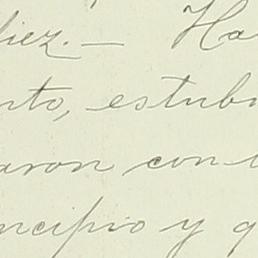 diez.— Ha
nto, estub
aron con
ncipio y q